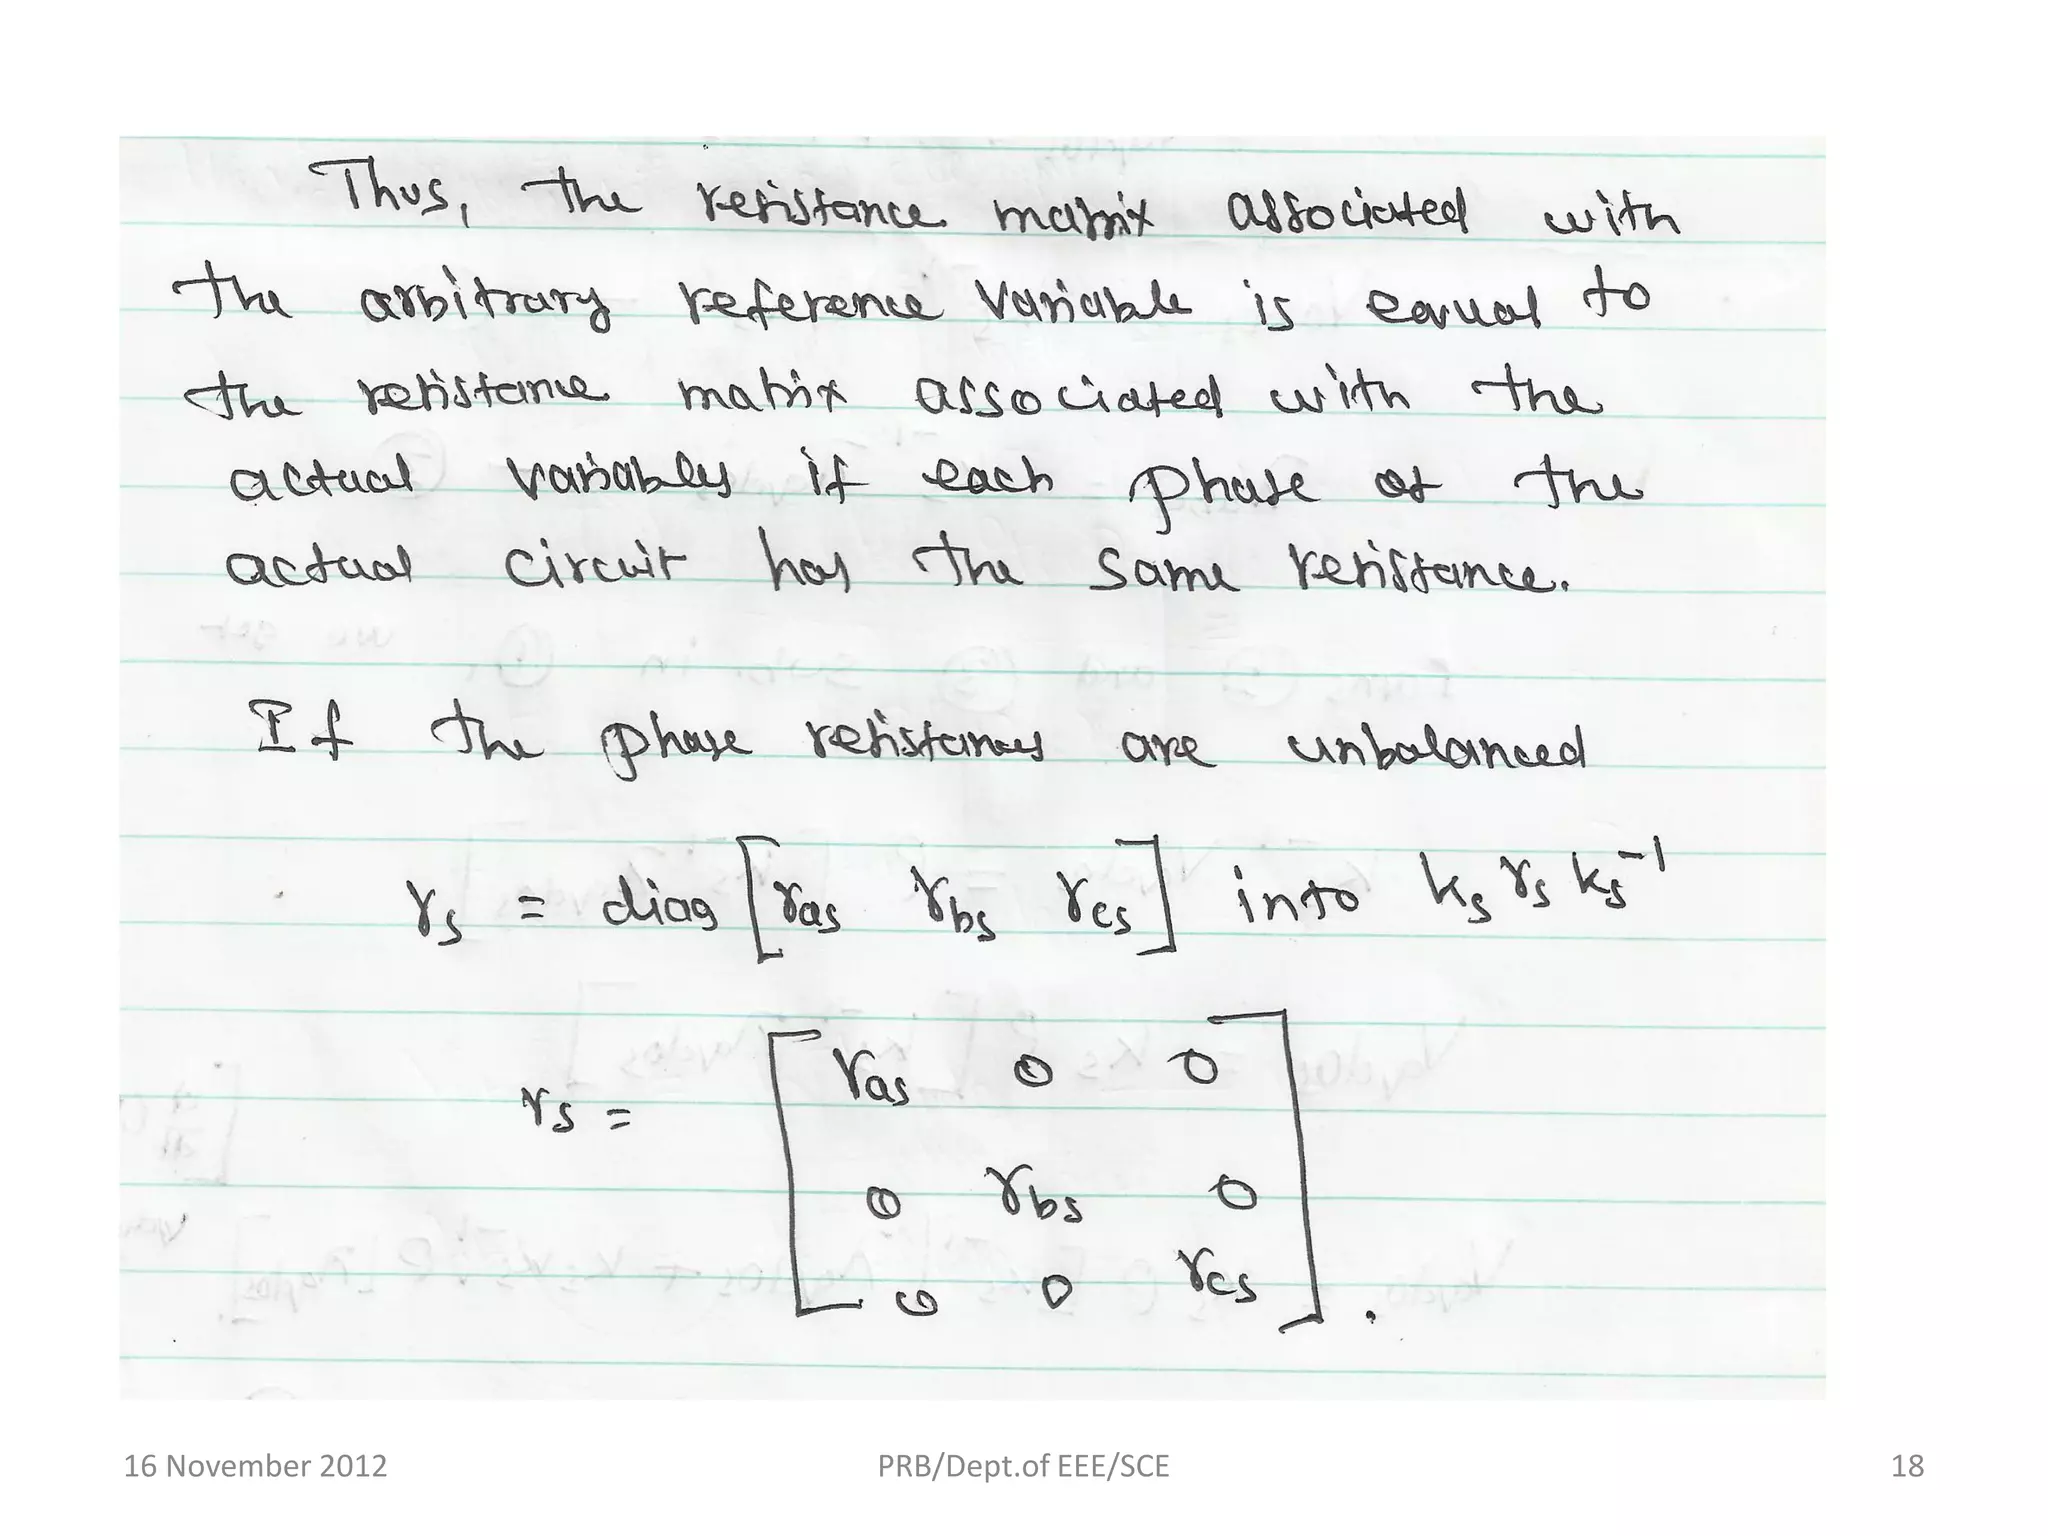 Thus, the resistance matrix associated with
the arbitrary reference variable is equal to
the resistance matrix associated with the
actual variables if each phase of the
actual circuit has the same resistance.
If the phase resistances are unbalanced
rs = diag [ras rbs rcs] into ks rs ks⁻¹
ras 0 0
rs =
0 rbs 0
0 0 rcs .
16 November 2012 PRB/Dept.of EEE/SCE 18